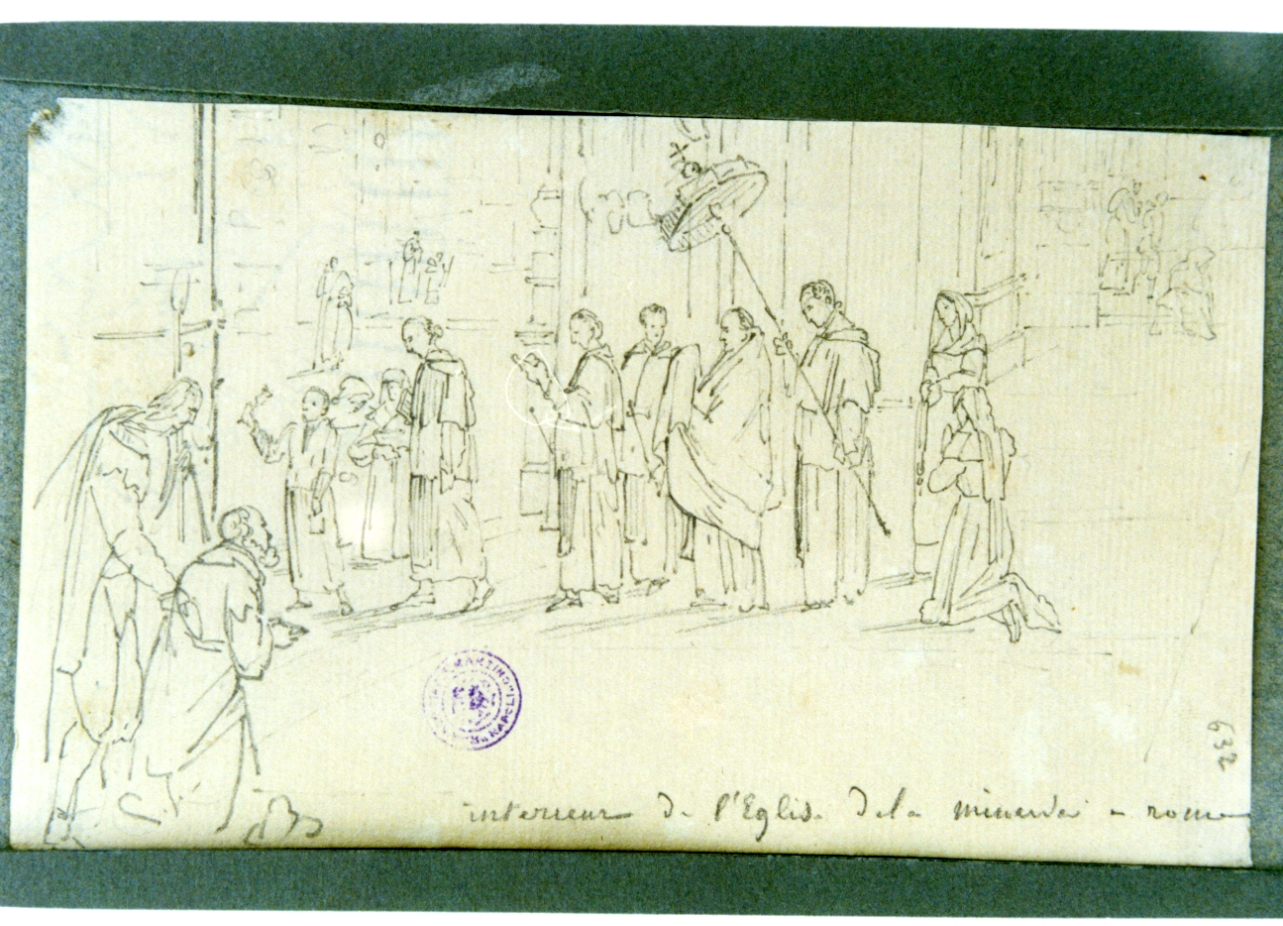 interieur de l'Eglise dela minerva a rome
632
MARTINO
NAPOLI